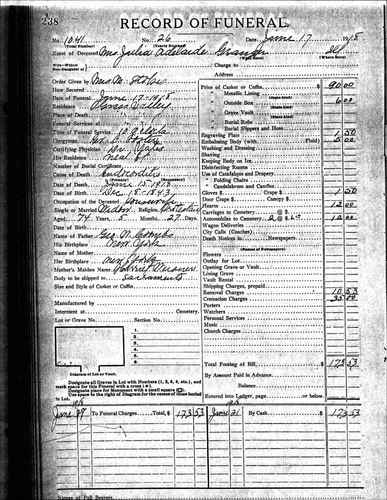 238
RECORD OF FUNERAL.
No. 1041 No. 26 Date June 17 1918
(Total Number) (Yearly Number)
Name of Deceased Mrs. Julia Adelaide
(Where Born)
Wife—Widow—
Son—Daughter of Charge to
Address
Order Given by Mrs. M.
How Secured
Date of Funeral June 17-1918
Residence Valley
Place of Death
Funeral Services at
Time of Funeral Service 10 Oclock
Clergyman
Certifying Physician Dr.
His Residence
Number of Burial Certificate
Cause of Death
Date of Death June 15-1918
Date of Birth Dec. 18-1843
Occupation of the Deceased Housewife
Single or Married Widow Religion
Aged 74 Years 5 Months 27 Days
Date of Birth
Name of Father Geo. M. Coombs
His Birthplace New York
Name of Mother
Her Birthplace New York
Mother's Maiden Name
Body to be shipped to Sacramento
Size and Style of Casket or Coffin
Manufactured by
Interment at Cemetery
Lot or Grave No. Section No.
1.
2.
3.
4.
5.
6.
Diagram of Lot or Vault.
Designate all Graves in Lot with Numbers (1, 2, 3, 4, etc.), and
mark space for this Funeral with a cross
Designate place for Monument with a small square
Use space in the right of Diagram for the names of those buried
in Lot.
Price of Casket or Coffin $ 90.00
Metallic Lining
Outside Box 6.00
Grave Vault
Burial Robe
Burial Slippers and Hose
Engraving Plate 1.50
Embalming Body (with Fluid) 5.00
Washing and Dressing
Shaving
Keeping Body on Ice
Disinfecting Rooms
Use of Catafalque and Drapery
" Folding Chairs
" Candelabrum and Candles
Gloves $ Crape $ 1.50
Door Crape $ Canopy $
Hearse 12.00
Carriages to Cemetery @ $
Automobiles to Cemetery 2 @ $ 6.00 12.00
Wagon Deliveries
City Calls (Coaches)
Death Notices in Newspapers
(Names of Newspapers)
Flowers
Outlay for Lot
Opening Grave or Vault
Lining Grave
Vault Rental
Shipping Charges, prepaid
Removal Charges 10.53
Cremation Charges 35.00
Porters
Watchers
Personal Services
Music
Church Charges
Total Footing of Bill $ 173.53
By Amount Paid in Advance
Balance
Entered into Ledger, page or below
To Funeral Charges Total, $ 173 53 June 21 By Cash $ 173.53
Names of Pall Bearers